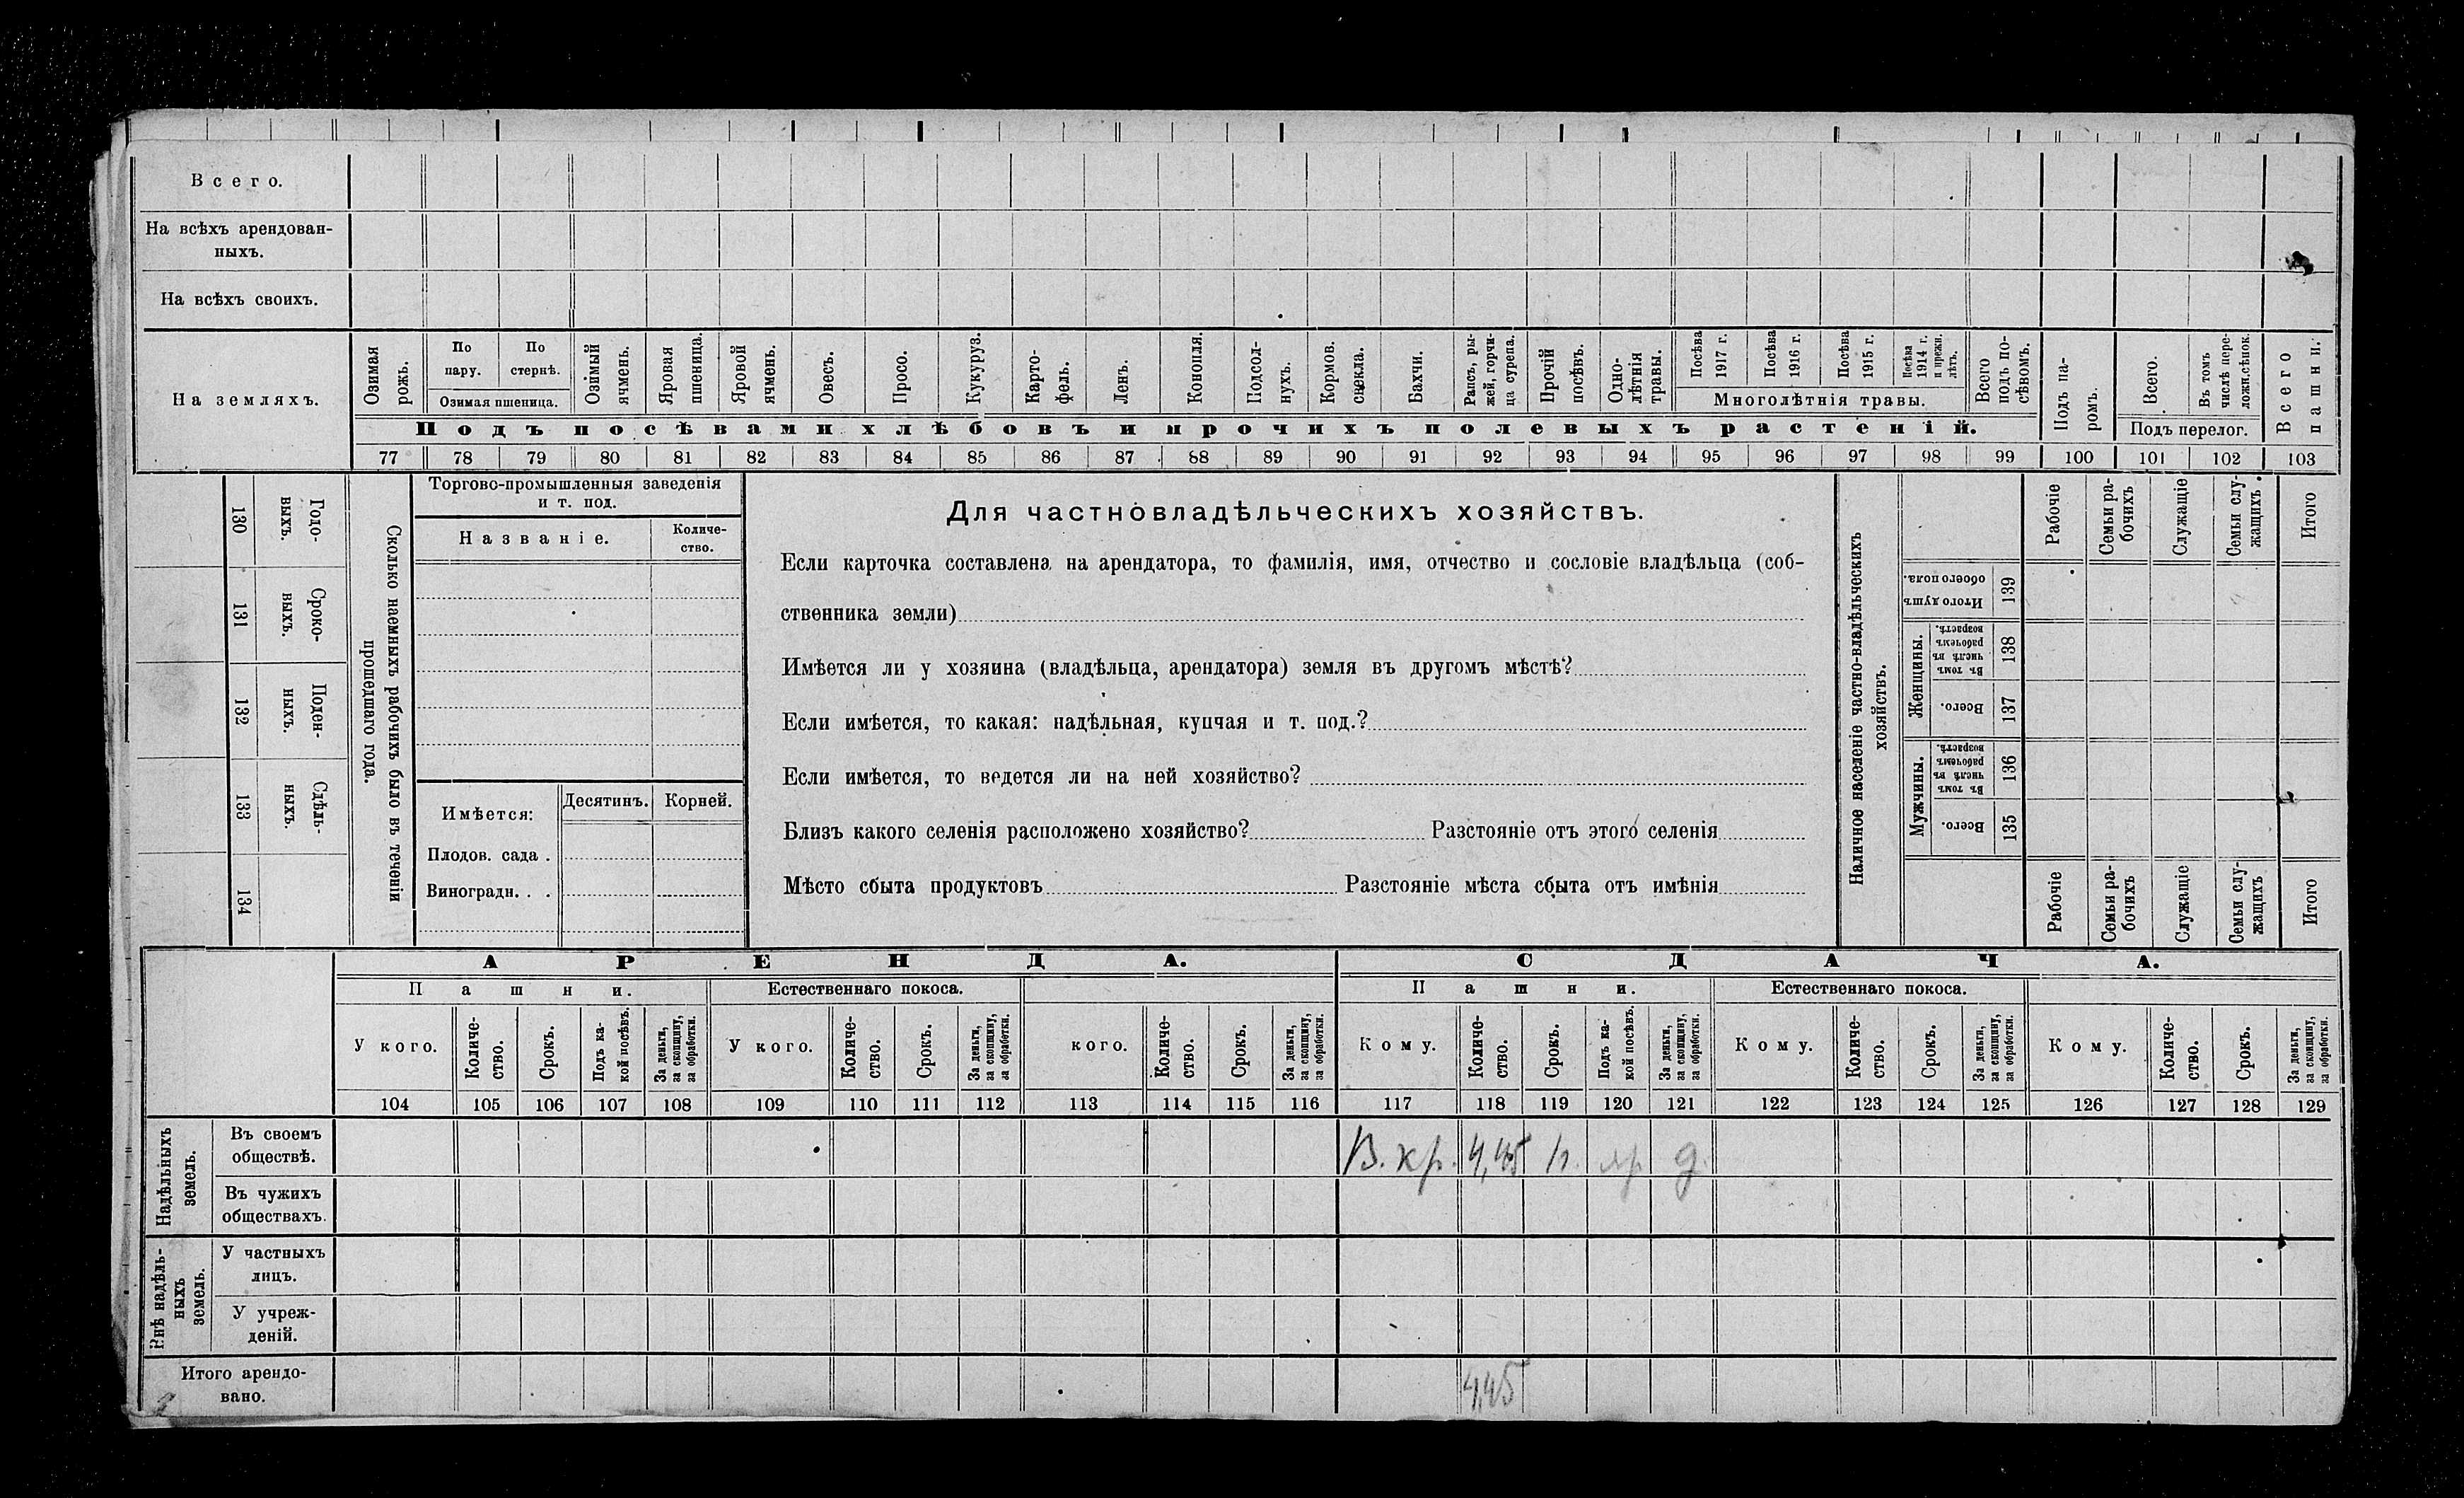 Всего.
На всѣхъ арендован-
ныхъ.
На всѣхъ своихъ.
На земляхъ.
Озимая рожь.
По пару.
По стернѣ.
Озимая пшеница.
Озимый ячмень.
Яровая пшеница.
Яровой ячмень.
Овесъ.
Просо.
Кукуруз.
Карто-
фель.
Ленъ.
Конопля.
Подсол-
нухъ.
Кормов. свекла.
Бахчи.
Рапсъ, ры-
жей, горчи-
ца сурепа.
Прочій посѣвъ.
Одно-
лѣтнія травы.
Посѣва 1917 г.
Посѣва 1916 г.
Посѣва 1915 г.
Посѣва 1914 г. и прежн. лѣтъ.
Многолѣтнія травы.
Всего подъ по-
сѣвомъ.
Подъ па-
ромъ.
Всего.
Въ томъ числѣ пере-
ложн. сѣнок.
Подъ перелог.
Всего пашни.
Подъ посѣвами хлѣбовъ и прочихъ полевыхъ растеній.
77 78 79 80 81 82 83 84 85 86 87 88 89 90 91 92 93 94 95 96 97 98 99 100 101 102 103
130 Годо-
выхъ.
131 Сроко-
выхъ.
132 Поден-
ныхъ.
133 Сдѣль-
ныхъ.
134
Сколько наемныхъ рабочихъ было въ теченіи
прошедшаго года.
Торгово-промышленныя заведенія
и т. под.
Названіе.
Количе-
ство.
Имѣется:
Десятинъ.
Корней.
Плодов. сада .
Виноградн. . .
Для частновладѣльческихъ хозяйствъ.
Если карточка составлена на арендатора, то фамилія, имя, отчество и сословіе владѣльца (соб-
ственника земли)
Имѣется ли у хозяина (владѣльца, арендатора) земля въ другомъ мѣстѣ?
Если имѣется, то какая: надѣльная, купчая и т. под.?
Если имѣется, то ведется ли на ней хозяйство?
Близъ какого селенія расположено хозяйство? Разстояніе отъ этого селенія
Мѣсто сбыта продуктовъ Разстояніе мѣста сбыта отъ имѣнія
Наличное населеніе частно-владѣльческихъ
хозяйствъ.
Рабочіе
Семьи ра-
бочихъ
Служащіе
Семьи слу-
жащихъ.
Итого
Итого душъ обоего пола. 139
Женщины.
Въ томъ числѣ въ рабочемъ возрастѣ. 138
Всего. 137
Мужчины.
Въ томъ числѣ въ рабочемъ возрастѣ. 136
Всего. 135
Рабочіе
Семьи ра-
бочихъ
Служащіе
Семьи слу-
жащихъ
Итого
АРЕНДА.
СДАЧА.
Пашни.
Естественнаго покоса.
Пашни.
Естественнаго покоса.
У кого.
Количе-
ство.
Срокъ.
Подъ ка-
кой посѣвъ.
За деньги,
за скопщину,
за обработки.
У кого.
Количе-
ство.
Срокъ.
За деньги,
за скопщину,
за обработки.
кого.
Количе-
ство.
Срокъ.
За деньги,
за скопщину,
за обработки.
Кому.
Количе-
ство.
Срокъ.
Подъ ка-
кой посѣвъ.
За деньги,
за скопщину,
за обработки.
Кому.
Количе-
ство.
Срокъ.
За деньги,
за скопщину,
за обработки.
Кому.
Количе-
ство.
Срокъ.
За деньги,
за скопщину,
за обработки.
104 105 106 107 108 109 110 111 112 113 114 115 116 117 118 119 120 121 122 123 124 125 126 127 128 129
Надѣльныхъ
земель.
Въ своемъ
обществѣ.
В. кр. 4,45 яр д.
Въ чужихъ
обществахъ.
Внѣ надѣль-
ныхъ
земель.
У частныхъ
лицъ.
У учреж-
деній.
Итого арендо-
вано.
4,45